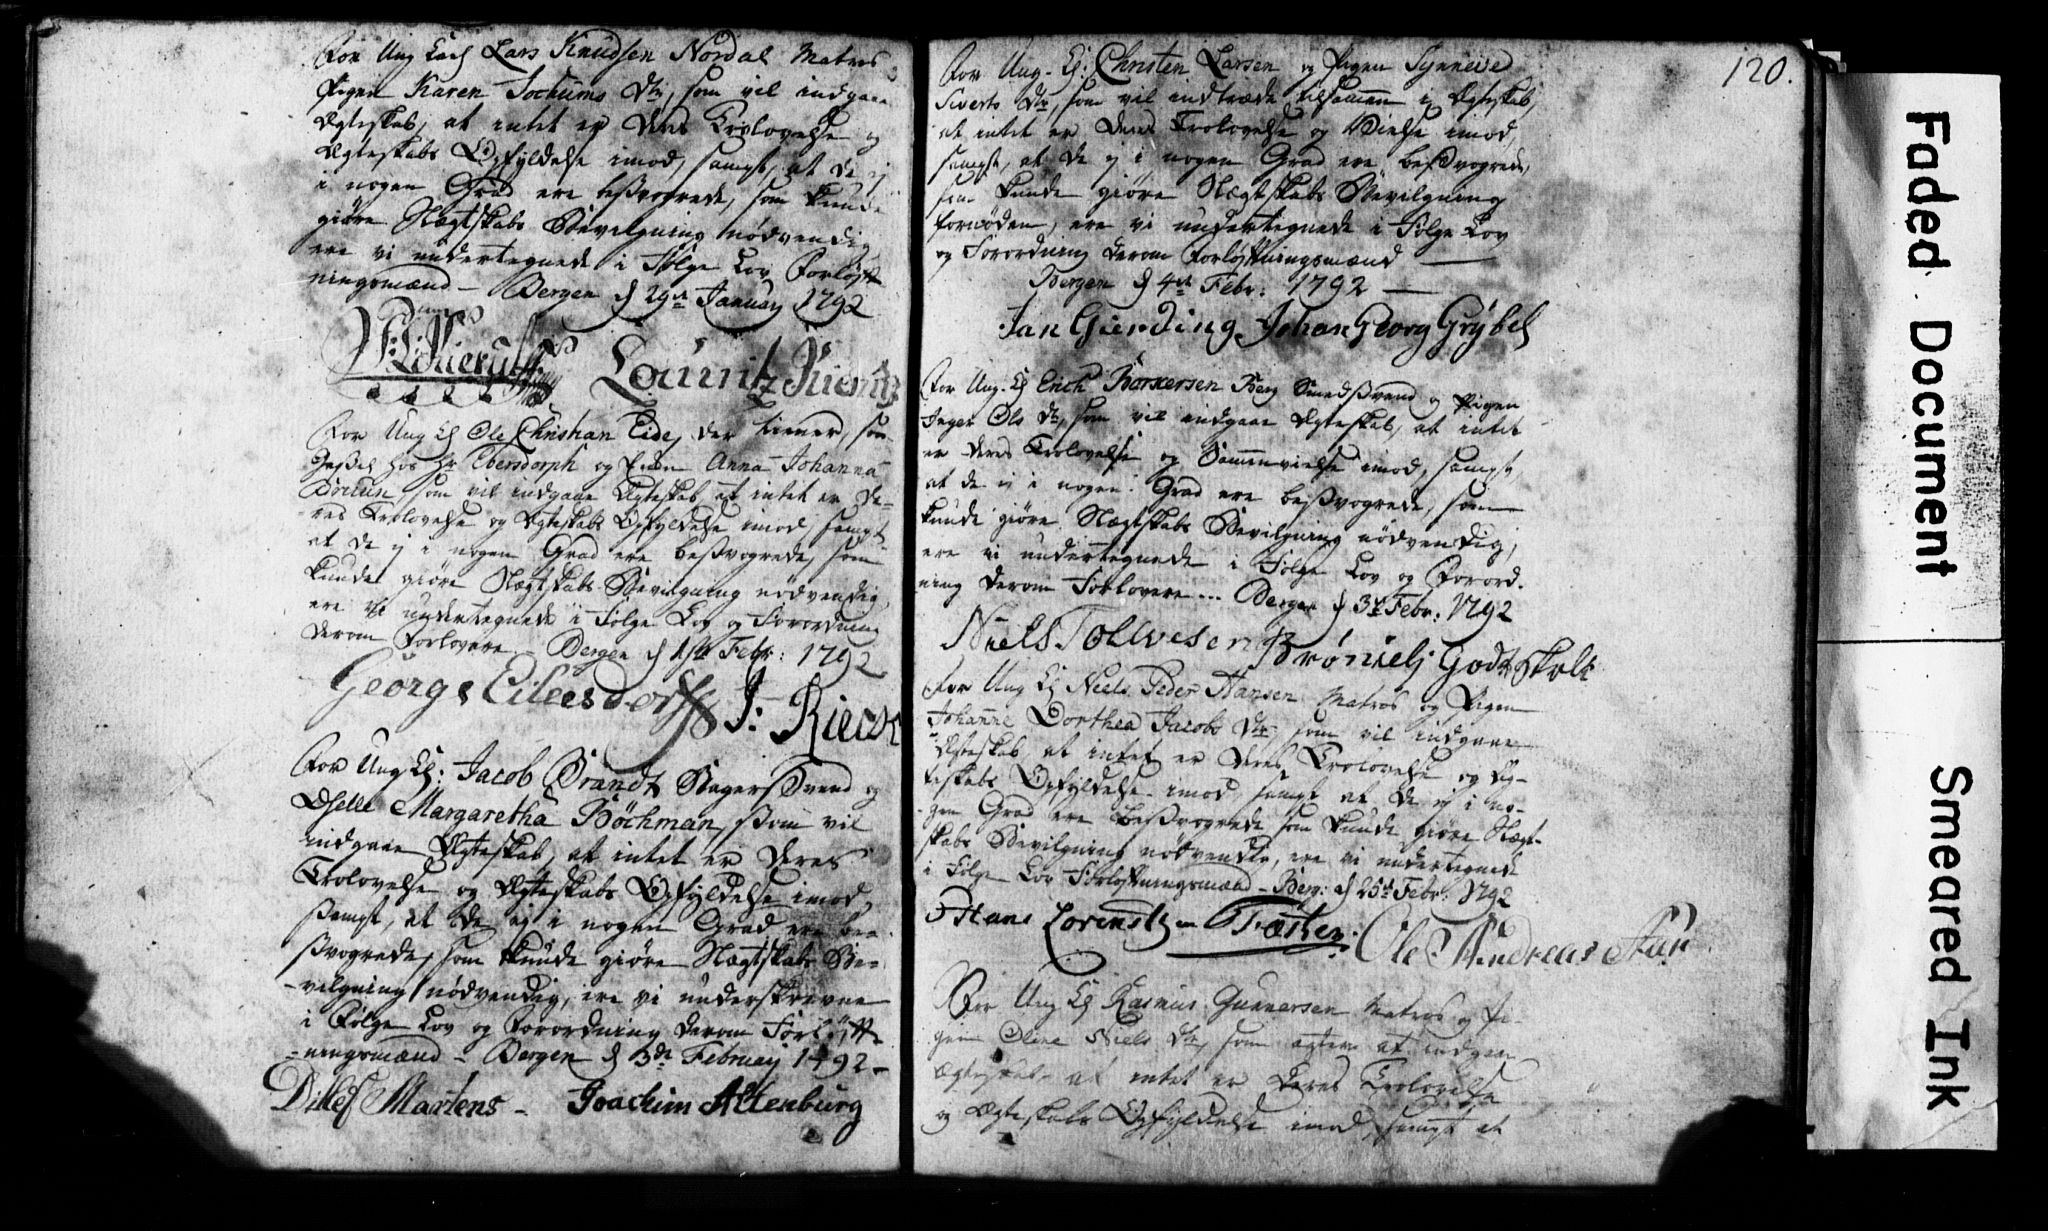 For Ung Karl Lars Knudsen Nordal Matros
Pigen Karen Jochums Dtr, som vil indgaae
Ægteskab, at intet er deres Trolovelse og
Ægteskabs Opfyldelse imod, samt, at de ej
i nogen Grad ere besvogrede, som kunde
giøre Slægtskabs Bevilgning nødvendig
ere vi undertegnede i Følge Lov Forløft
ningsmænd - Bergen d 29de January 1792
For Ung K Ole Christian Eide, der tiener, som
hos Hr Ebersdorph og Anna Johanna
som vil indgaae Ægteskab, at intet er de-
res Trolovelse og Ægteskabs Opfyldelse imod samt
at de ej i nogen Grad ere besvogrede, som
kunde giøre Slægtskabs Bevilgning nødvendig,
ere vi undertegnede i Følge Lov og Forordning
derom Forlovere. Bergen d 1ste Febr: 1792
George Eilersdorff J: Rieck
For Ung K: Jacob Brandt Bagersvend og
Margaretha Böchman, som vil
indgaae Ægteskab, at intet er deres
Trolovelse og Ægteskabs Opfyldelse imod,
samt, at de ej i nogen Grad ere be-
svogrede, som kunde giøre Slægtskabs Be-
vilgning nødvendig, ere vi underskrevne
i Følge Lov og Forordning derom Forløft
-ningsmænd - Bergen d 3de February 1792 -
Ditlef Martens - Joachim Altenburg
120.
For Ung K: Christen Larsen og Pigen Synneve
Siverts Dtr, som vil indtræde tilsammen i Ægteskab,
at intet er deres Trolovelse og Vielse imod,
samt, at de ej i nogen Grad ere besvogrede,
som kunde giøre Slægtskabs Bevilgning
fornøden, ere vi undertegnede i Følge Lov
og Forordning derom Forløftningsmænd
Bergen d 4de Febr: 1792
Jan Gierding Johan Georg Grÿbel
For Ung K Erich Berg Smedsvend og Pigen
Inger Ols Dtr, som vil indgaae Ægteskab, at intet
er deres Trolovelse og Sammenvielse imod, samt
at de ej i nogen Grad ere besvogrede, som
kunde giøre Slægtskabs Bevilgning nødvendig,
ere vi undertegnede i Følge Lov og Forord-
ning derom Forlovere... Bergen d 3de Febr: 1792
Niels Tollvesen
For Ung K Niels Peder Hansen Matros og Pigen
Johanne Dorthea Jacobs Dtr som vil indgaae
Ægteskab at intet er deres Trolovelse og Æg-
teskabs Opfyldelse imod samt at de ej i no-
gen Grad ere besvogrede som kunde giøre Slægt-
skabs Bevilgning nødvendig, ere vi undertegnede
i Følge Lov Forløftningsmænd - Berg: d 25de Febr: 1792
Hans Lorentz Ole Andreas
For Ung K Rasmus Gunnersen Matros og Pi-
gen Oline Niels Dtr, som agter at indgaae
Ægteskab at intet er deres Trolovelse
og Ægteskabs Opfyldelse imod, samt at
Faded Document
Smeared Ink